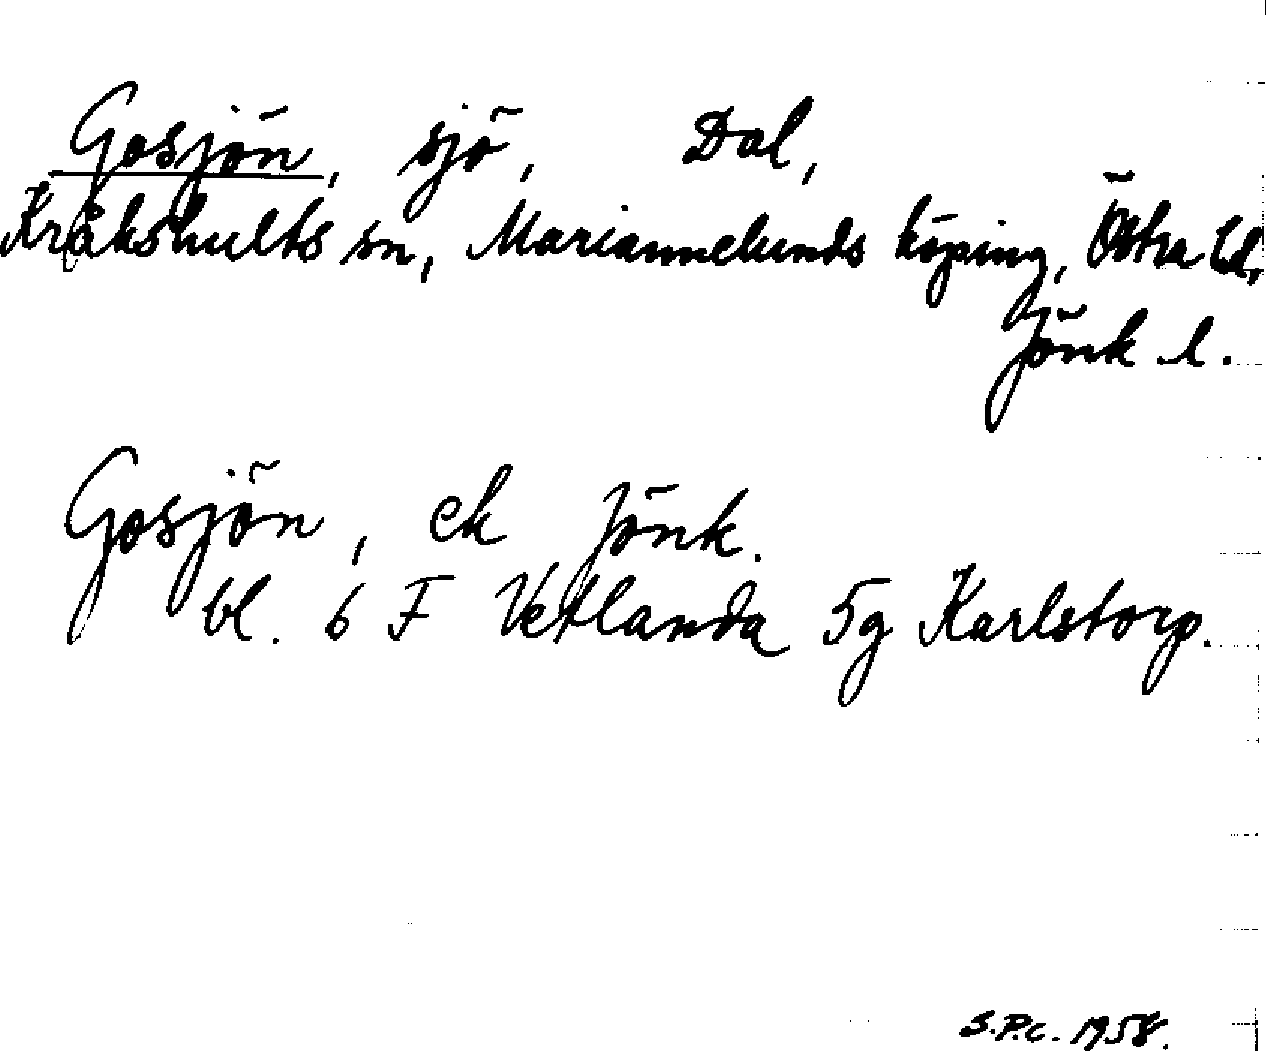 Gosjön, sjö, Dal,
Kråkshults sn, Mariannelunds köping, Östra hd,
Jönk l.
Gosjön, ek Jönk.
bl. 6 F Vetlanda 5g Karlstorp.
S.P.C. 1958.